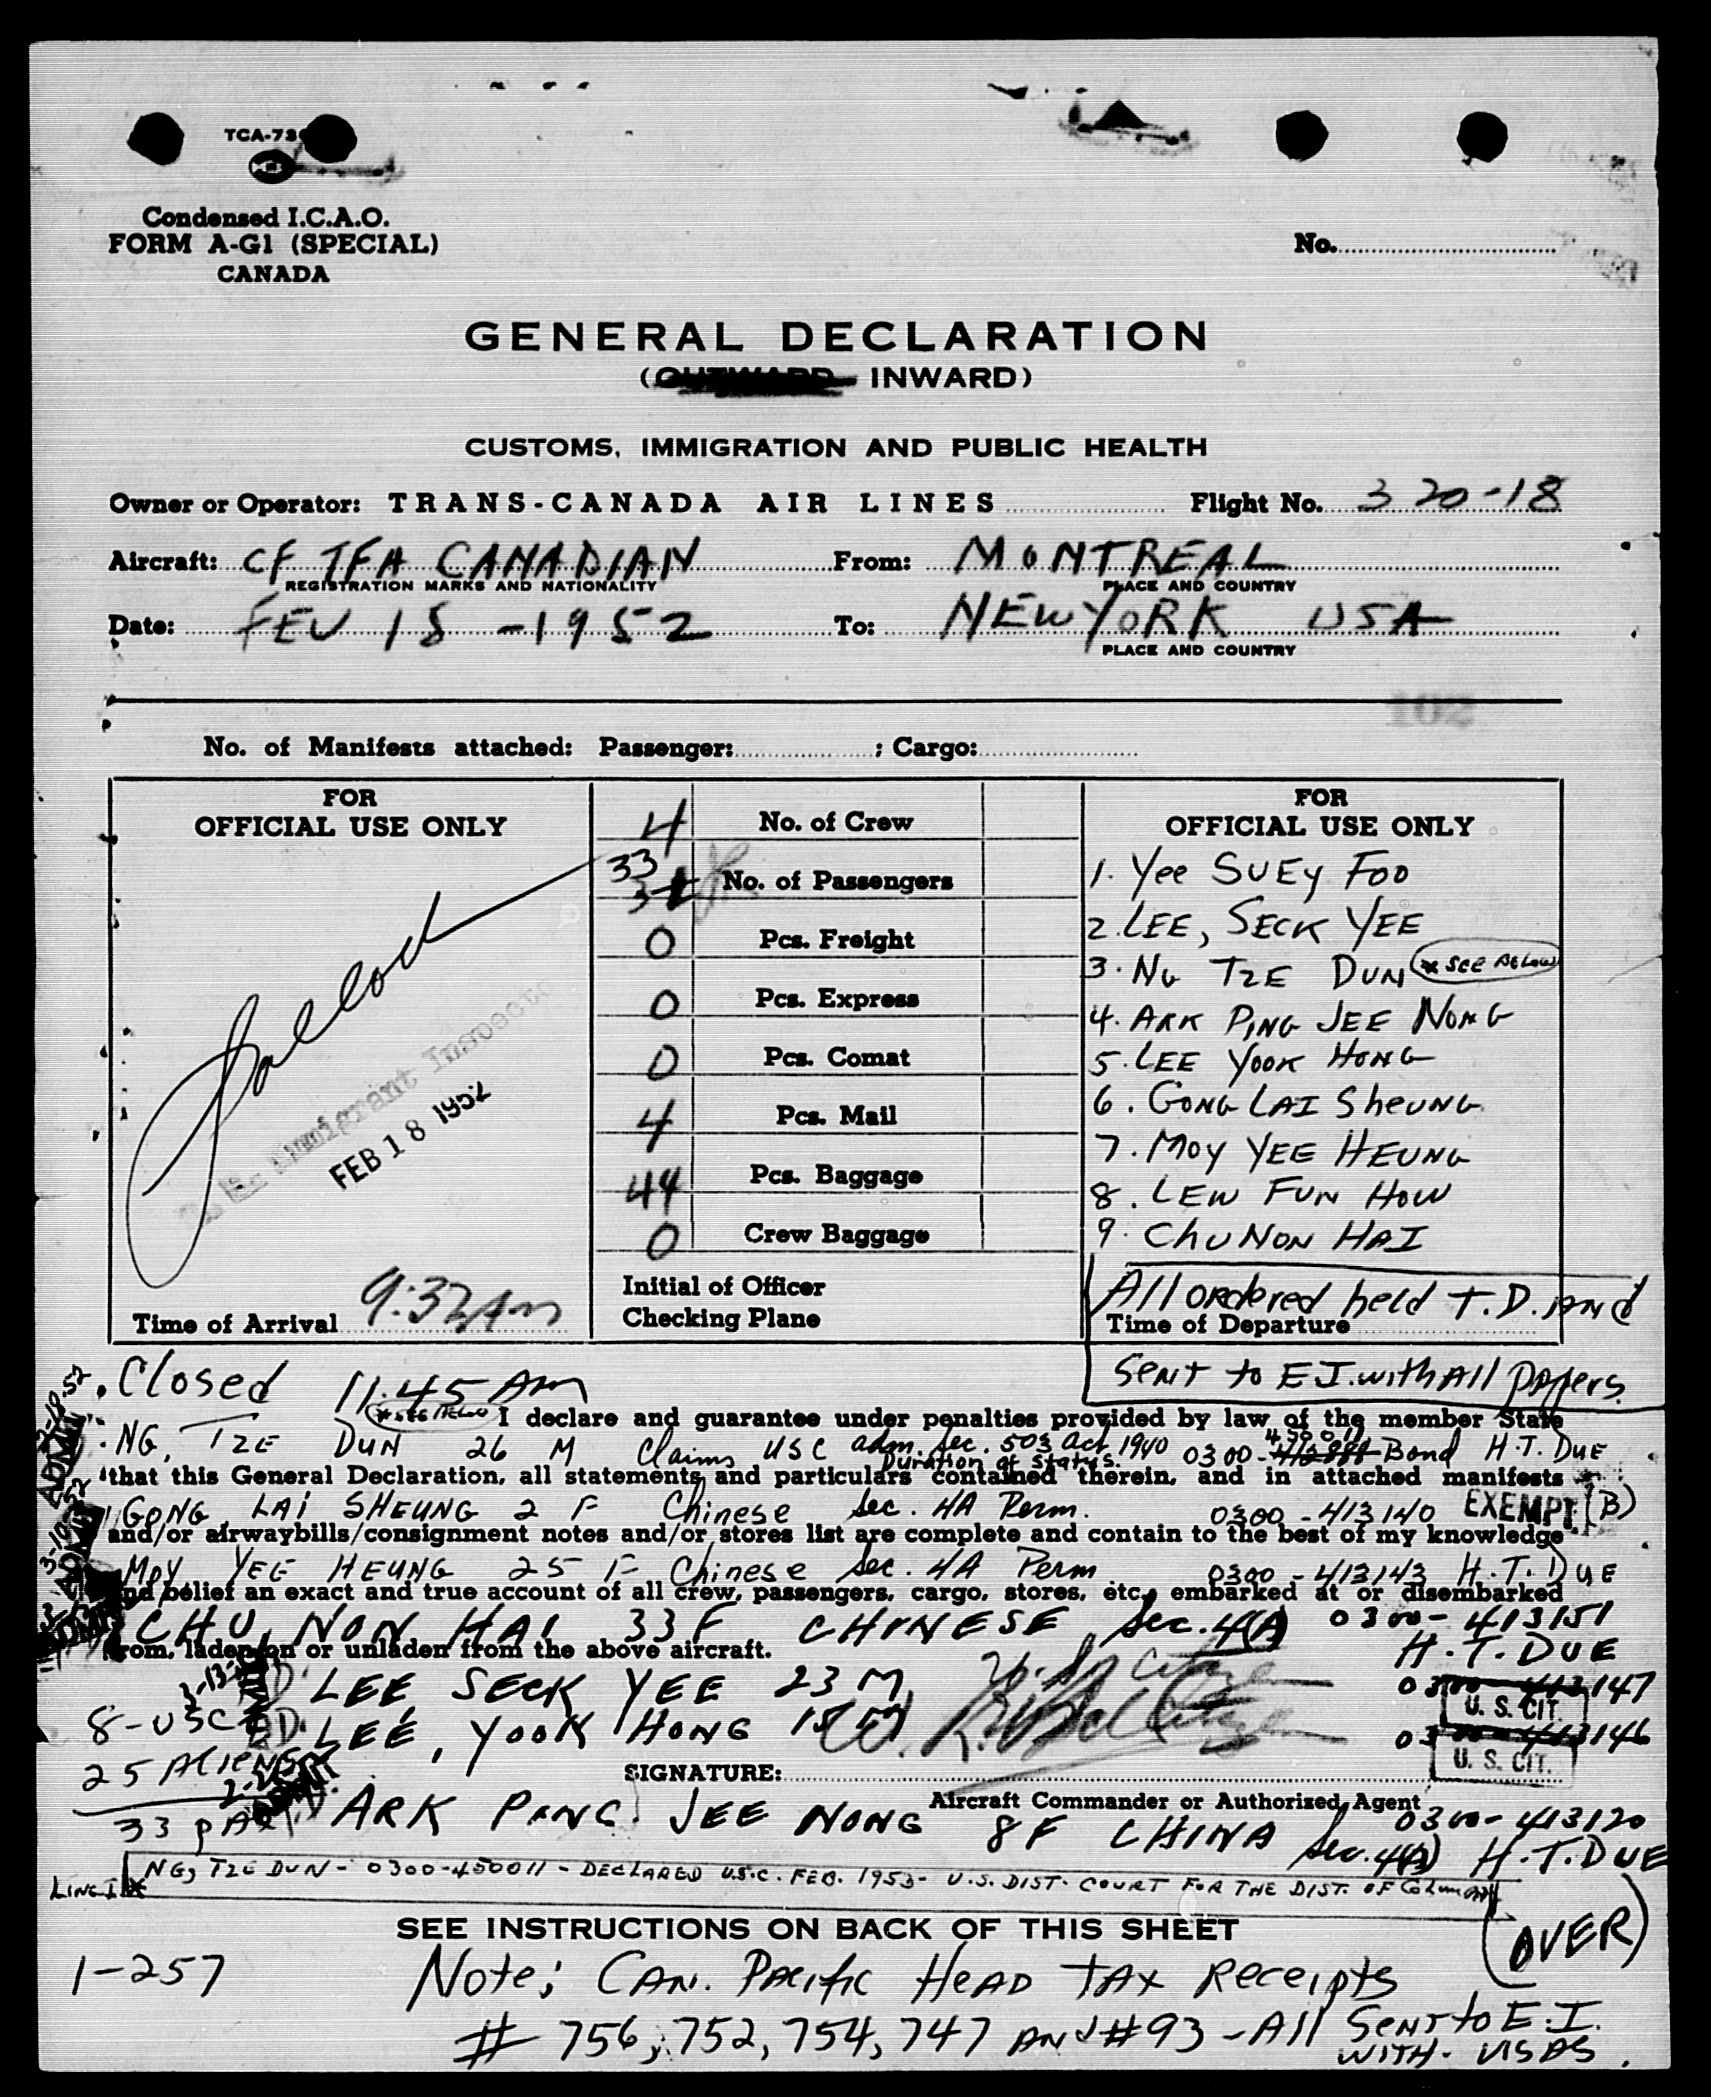 TCA-73
Condensed I.C.A.O.
FORM A-G1 (SPECIAL)
CANADA
No.
GENERAL DECLARATION
(OUTWARD INWARD)
CUSTOMS, IMMIGRATION AND PUBLIC HEALTH
Owner or Operator: TRANS-CANADA AIR LINES Flight No. 320-18
Aircraft: CF TFA CANADIAN From: MONTREAL
REGISTRATION MARKS AND NATIONALITY PLACE AND COUNTRY
Date: FEV 18 -1952 To: NEW YORK USA
PLACE AND COUNTRY
102
No. of Manifests attached: Passenger: ; Cargo:
FOR
OFFICIAL USE ONLY
Immigrant Inspector
FEB 18 1952
Time of Arrival 9:32 Am
4 No. of Crew
33 No. of Passengers
0 Pcs. Freight
0 Pcs. Express
0 Pcs. Comat
4 Pcs. Mail
44 Pcs. Baggage
0 Crew Baggage
Initial of Officer
Checking Plane
FOR
OFFICIAL USE ONLY
1. Yee SUEy FOO
2. LEE, SECK YEE
3. NG TZE DUN * see Below
4. ARK PING JEE NONG
5. LEE YOOK HONG
6. GONG LAI SHEUNG
7. MOY YEE HEUNG
8. LEW FUN HOW
9. CHU NON HAI
All ordered held T.D. AND
Time of Departure
SENT to E.I. with All papers.
Closed 11:45 Am
I declare and guarantee under penalties provided by law of the member State
NG, TZE DUN 26 M Claims USC adm. Sec. 503 act 1940 0300- 450011 Bond H.T. DUE
Duration of Status.
that this General Declaration, all statements and particulars contained therein, and in attached manifests
GONG LAI SHEUNG 2 F Chinese Sec. 4A Perm. 0300-413140 EXEMPT (B)
and/or airwaybills/consignment notes and/or stores list are complete and contain to the best of my knowledge
MOY YEE HEUNG 25 F Chinese Sec. 4A Perm 0300-413143 H.T. DUE
and belief an exact and true account of all crew, passengers, cargo, stores, etc., embarked at or disembarked
CHU, NON HAI 33 F CHINESE Sec. 4(A) 0300-413151
from, laden on or unladen from the above aircraft. H.T. DUE
LEE, SECK YEE 23 M U.S. Citizen 0300-413147
U. S. CIT.
8-USC LEE, YOOK HONG 0300-413146
U. S. CIT.
25 Aliens
SIGNATURE:
Aircraft Commander or Authorized Agent
33 PAX ARK PING JEE NONG 8F CHINA Sec. 4(A) 0300-413120 H.T. DUE
LINE 1 * NG, TZE DUN - 0300-450011 - DECLARED U.S.C. FEB. 1953 - U.S. DIST. COURT FOR THE DIST. OF Columbia
SEE INSTRUCTIONS ON BACK OF THIS SHEET
(OVER)
1-257
Note; CAN. PACIFIC HEAD TAX Receipts
# 756, 752, 754, 747 AND #93 - All SENT to E.I.
WITH VISAS.